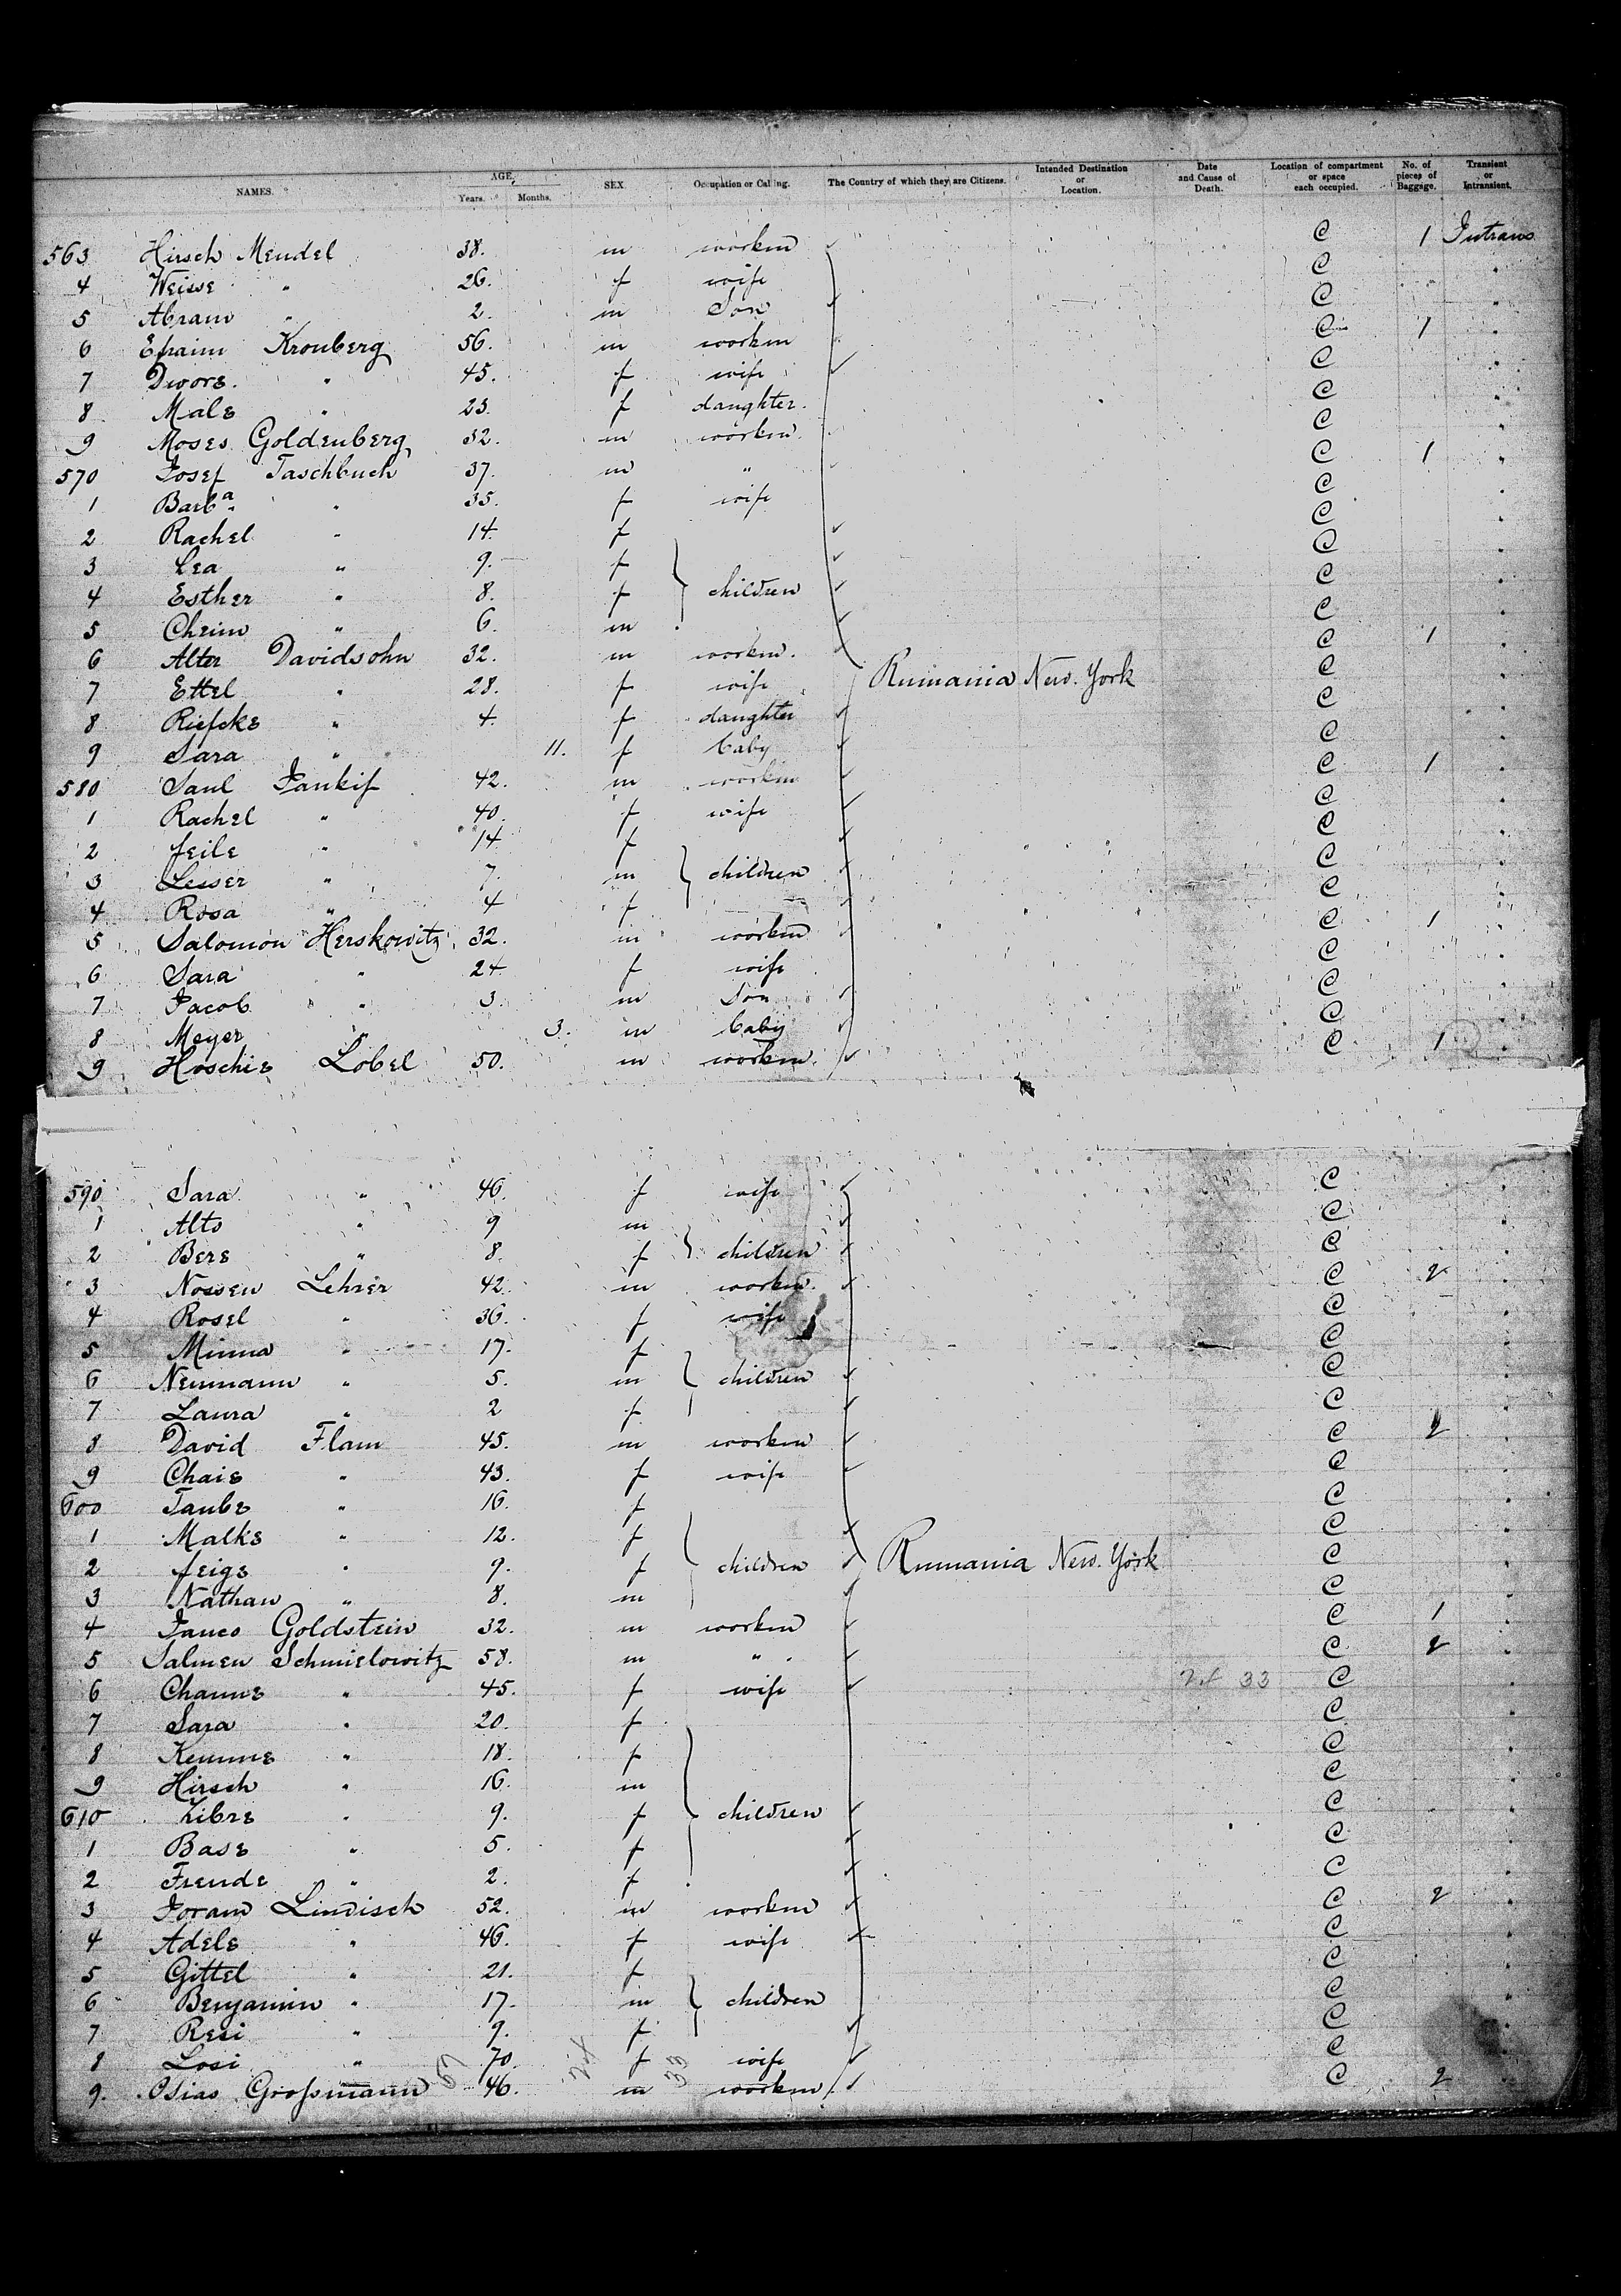 NAMES. AGE, Years. Months. SEX. Occupation or Calling. The Country of which they are Citizens. Intended Destination or Location. Date and Cause of Death. Location of compartment or space each occupied. No. of pieces of Baggage. Transient or Intransient.
563 Hirsch Mendel 38. m workm C 1 Intrans
4 Weisse " 26. f wife C "
5 Abram " 2. m Son C "
6 Efraim Kronberg 56. m workm C 1 "
7 Dwore. " 45. f wife C "
8 Male " 23. f daughter. C "
9 Moses Goldenberg 32. m workm. C "
570 Josef Taschbuch 37. m " C 1 "
1 Barba " 35. f wife C "
2 Rachel " 14. f C "
3 Lea " 9. f C "
4 Esther " 8. f children C "
5 Cheim " 6. m C "
6 Alter Davidsohn 32. m workm. C 1 "
7 Ettel " 28. f wife Rumania New. York C "
8 Riefcke " 4. f daughter C "
9 Sara " 11. f baby C "
580 Saul Jankif 42. m workm C 1 "
1 Rachel " 40. f wife C "
2 feile " 14 f C "
3 Lesser " 7. m children C "
4 Rosa " 4 f C "
5 Salomon Herskowitz 32. m workm C 1 "
6 Sara " 24 f wife C "
7 Jacob " 3. m Son C "
8 Meyer " 3. m baby C "
9 Hoschie Lobel 50. m workm. C 1 "
590 Sara " 46. f wife C "
1 Alto " 9 m C "
2 Bere " 8. f children C "
3 Nossen Lehrer 42. m workm. C 2 "
4 Rosel " 36. f wife C "
5 Minna " 17. f C "
6 Neumann " 5. m children C "
7 Laura " 2 f C "
8 David Flam 45. m workm C 2 "
9 Chaie " 43. f wife C "
600 Taube " 16. f C "
1 Malke " 12. f C "
2 feige " 9. f children Rumania New. York C "
3 Nathan " 8. m C "
4 Janco Goldstein 32. m workm C 1 "
5 Salmen Schmielowitz 58. m " C 2 "
6 Channe " 45. f wife 33 C "
7 Sara " 20. f C "
8 Kemme " 18. f C "
9 Hirsch " 16. m C "
610 Libre " 9. f children C "
1 Base " 5. f C "
2 Freude " 2. f C "
3 Joram Lindisch 52. m workm C 2 "
4 Adele " 46. f wife C "
5 Gittel " 21. f C "
6 Benjamin " 17. m children C "
7 Resi " 9. f C "
8 Losi " 70. f wife C "
9. Osias Großmann 46. m workm C 2 "
33